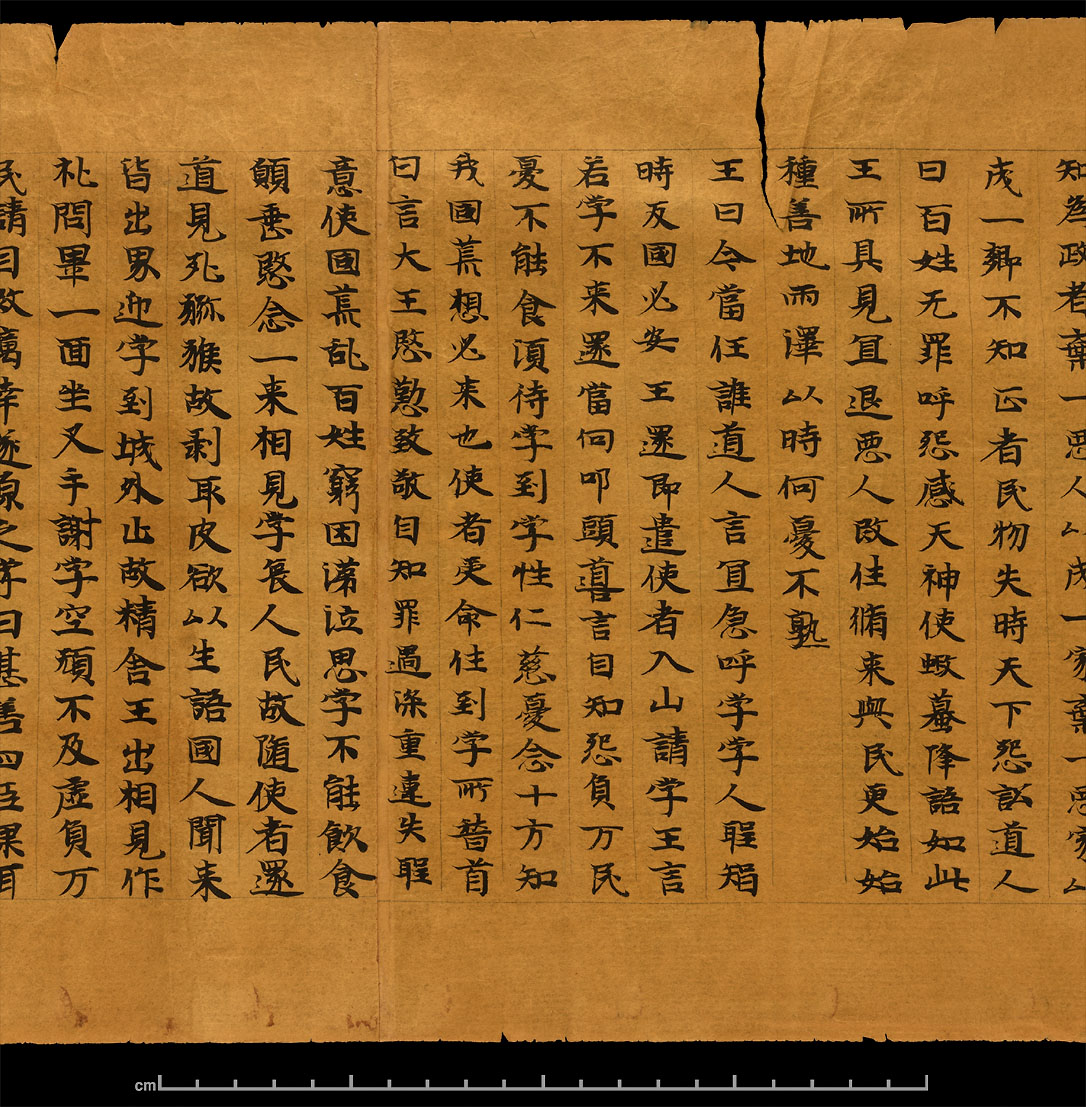 知為政者棄一惡人以成一家棄一惡家以
成一鄉不知正者民物失時天下怨訟道人
曰百姓无罪呼怨感天神使蝦蟇降語如此
王所具見宜退惡人改住脩来與民更始始
種善地雨澤以時何憂不熟
王曰今當任誰道人言宜急呼孛孛人聖智
時反國必安王還即遣使者入山請孛王言
若孛不来還當何叩頭噵言自知怨負万民
憂不能食須待孛到孛性仁慈憂念十方知
我國荒想必来也使者受命住到孛所𥡴首
曰言大王慇懃致敬自知罪過深重違失聖
意使國荒乱百姓窮困涕泣思孛不能飲食
願垂愍念一来相見孛哀人民故隨使者還
道見死獼猴故剥取皮欲以生語國人聞来
皆出界迎孛到城外止故精舍王出相見作
礼問畢一面坐叉手謝孛空頑不及虛負万
民請自改厲幸遂原之孛曰甚善四臣